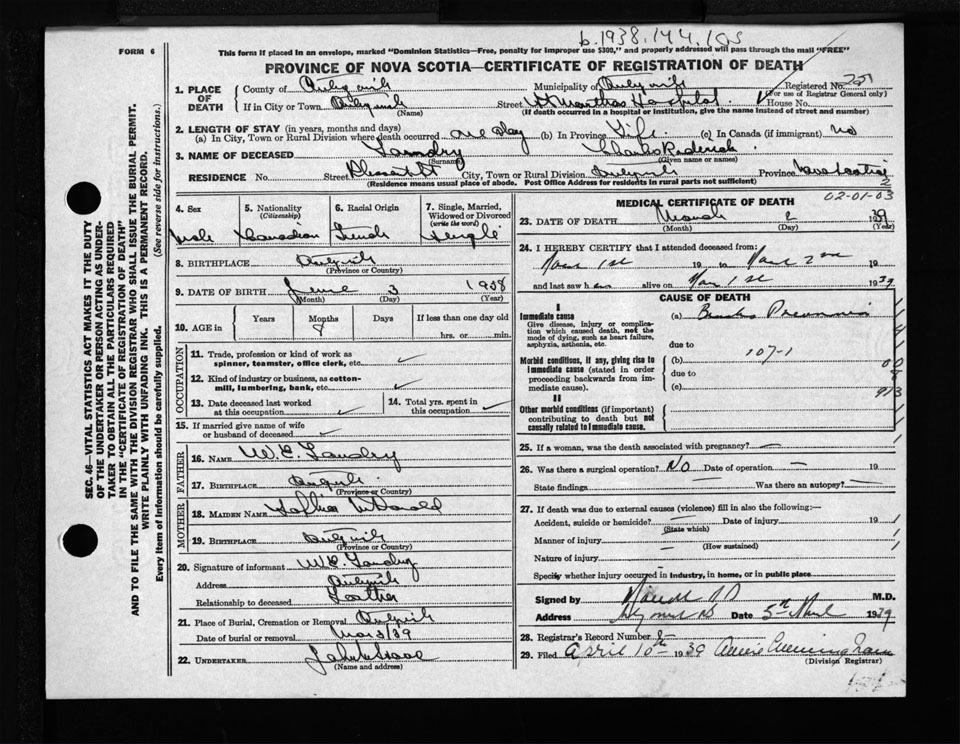 b.1938.144.105
FORM 6
This form if placed in an envelope, marked "Dominion Statistics—Free, penalty for improper use $300," and properly addressed will pass through the mail "FREE"
PROVINCE OF NOVA SCOTIA—CERTIFICATE OF REGISTRATION OF DEATH
1. PLACE OF DEATH
County of Municipality of Registered No.
(For use of Registrar General only)
If in City or Town Street St Marthas Hospital House No.
(Name) (If death occurred in a hospital or institution, give the name instead of street and number)
2. LENGTH OF STAY (in years, months and days)
(a) In City, Town or Rural Division where death occurred one day (b) In Province Life (c) In Canada (if immigrant) no
3. NAME OF DECEASED Landry Charles Roderick
(Surname) (Given name or names)
RESIDENCE No. Street Pleasant St City, Town or Rural Division Province Nova Scotia
(Residence means usual place of abode. Post Office Address for residents in rural parts not sufficient)
2
4. Sex
Male
5. Nationality
(Citizenship)
Canadian
6. Racial Origin
French
7. Single, Married, Widowed or Divorced
(write the word)
Single
8. BIRTHPLACE
(Province or Country)
9. DATE OF BIRTH June 3 1938
(Month) (Day) (Year)
10. AGE in Years Months Days If less than one day old
hrs. or min.
OCCUPATION
11. Trade, profession or kind of work as spinner, teamster, office clerk, etc.
12. Kind of industry or business, as cotton-mill, lumbering, bank, etc.
13. Date deceased last worked at this occupation
14. Total yrs. spent in this occupation
15. If married give name of wife or husband of deceased
FATHER
16. NAME W.E. Landry
17. BIRTHPLACE
(Province or Country)
MOTHER
18. MAIDEN NAME McDonald
19. BIRTHPLACE
(Province or Country)
20. Signature of informant W.E. Landry
Address
Relationship to deceased Father
21. Place of Burial, Cremation or Removal
Date of burial or removal Mar 3/39
22. UNDERTAKER
(Name and address)
MEDICAL CERTIFICATE OF DEATH 02-01-03
23. DATE OF DEATH March 2 1939
(Month) (Day) (Year)
24. I HEREBY CERTIFY that I attended deceased from:
Mar 1st 19 to Mar 2nd 19
and last saw h alive on Mar 1st 1939
CAUSE OF DEATH
I
Immediate cause
Give disease, injury or complication which caused death, not the mode of dying, such as heart failure, asphyxia, asthenia, etc.
(a) Broncho Pneumonia
due to
Morbid conditions, if any, giving rise to immediate cause (stated in order proceeding backwards from immediate cause).
(b) 107-1
due to
(c)
II
Other morbid conditions (if important) contributing to death but not causally related to immediate cause.
25. If a woman, was the death associated with pregnancy? —
26. Was there a surgical operation? No Date of operation — 19
State findings Was there an autopsy? —
27. If death was due to external causes (violence) fill in also the following:—
Accident, suicide or homicide? — Date of injury 19
(State which)
Manner of injury —
(How sustained)
Nature of injury
Specify whether injury occurred in industry, in home, or in public place
Signed by M.D.
Address Date 5th 1939
28. Registrar's Record Number
29. Filed April 10th 1939 Cunningham
(Division Registrar)
SEC. 46—VITAL STATISTICS ACT MAKES IT THE DUTY
OF THE UNDERTAKER OR PERSON ACTING AS UNDER-
TAKER TO OBTAIN ALL THE PARTICULARS REQUIRED
IN THE "CERTIFICATE OF REGISTRATION OF DEATH"
AND TO FILE THE SAME WITH THE DIVISION REGISTRAR WHO SHALL ISSUE THE BURIAL PERMIT.
WRITE PLAINLY WITH UNFADING INK. THIS IS A PERMANENT RECORD.
Every item of Information should be carefully supplied. (See reverse side for instructions.)